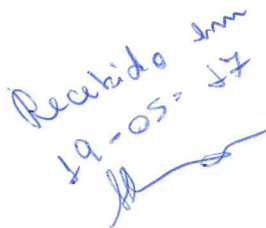 Recebido em
19-05-17